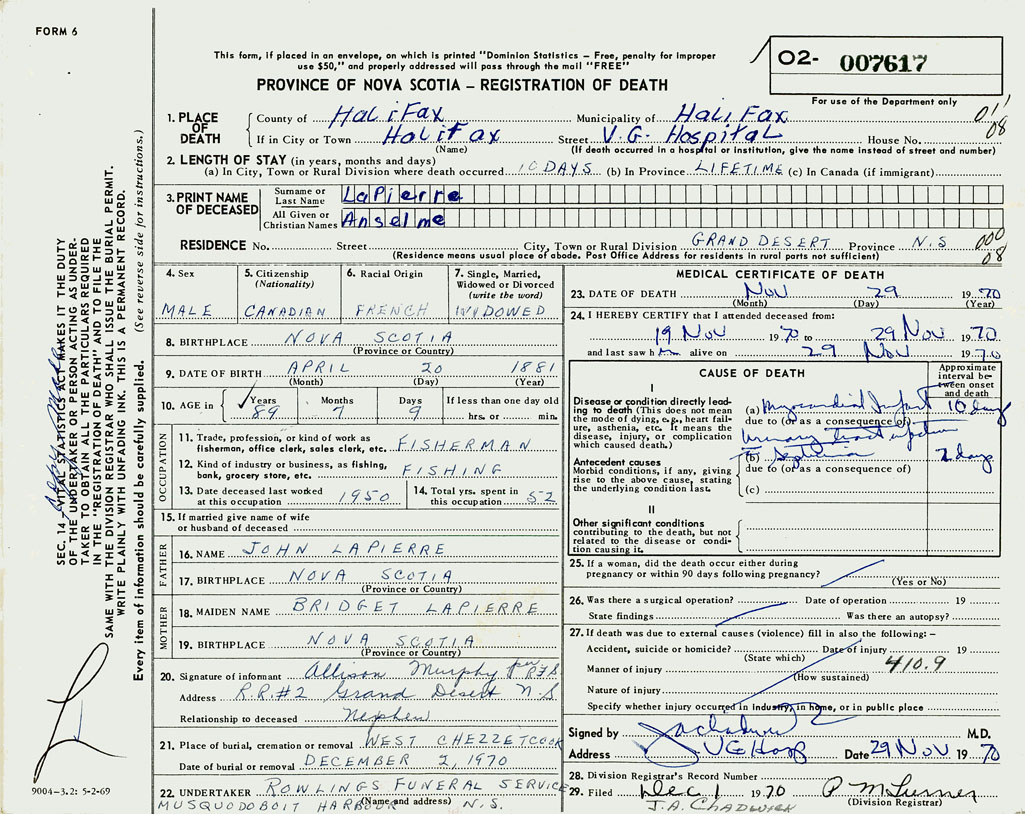 FORM 6
This form, if placed in an envelope, on which is printed "Dominion Statistics – Free, penalty for improper
use $50," and properly addressed will pass through the mail "FREE"
PROVINCE OF NOVA SCOTIA – REGISTRATION OF DEATH
02- 007617
For use of the Department only
1. PLACE OF DEATH
County of Halifax Municipality of Halifax 01'
If in City or Town Halifax Street V.G. Hospital House No. 08
(Name) (If death occurred in a hospital or institution, give the name instead of street and number)
2. LENGTH OF STAY (in years, months and days)
(a) In City, Town or Rural Division where death occurred 10 DAYS (b) In Province LIFETIME (c) In Canada (if immigrant)
3. PRINT NAME OF DECEASED
Surname or Last Name LaPierre
All Given or Christian Names Anselme
RESIDENCE No. Street City, Town or Rural Division GRAND DESERT Province N.S 000
(Residence means usual place of abode. Post Office Address for residents in rural parts not sufficient) 08
4. Sex
MALE
5. Citizenship
(Nationality)
CANADIAN
6. Racial Origin
FRENCH
7. Single, Married,
Widowed or Divorced
(write the word)
WIDOWED
8. BIRTHPLACE NOVA SCOTIA
(Province or Country)
9. DATE OF BIRTH APRIL 20 1881
(Month) (Day) (Year)
10. AGE in Years Months Days If less than one day old
89 7 9 hrs. or min.
OCCUPATION
11. Trade, profession, or kind of work as
fisherman, office clerk, sales clerk, etc. FISHERMAN
12. Kind of industry or business, as fishing,
bank, grocery store, etc. FISHING
13. Date deceased last worked
at this occupation 1950
14. Total yrs. spent in
this occupation 52
15. If married give name of wife
or husband of deceased
FATHER
16. NAME JOHN LAPIERRE
17. BIRTHPLACE NOVA SCOTIA
(Province or Country)
MOTHER
18. MAIDEN NAME BRIDGET LAPIERRE
19. BIRTHPLACE NOVA SCOTIA
(Province or Country)
20. Signature of informant Allison Murphy per RFS
Address R.R.#2 Grand Desert N.S
Relationship to deceased Nephew
21. Place of burial, cremation or removal WEST CHEZZETCOOK
Date of burial or removal DECEMBER 2, 1970
22. UNDERTAKER ROWLINGS FUNERAL SERVICE
(Name and address)
MUSQUODOBOIT HARBOUR N.S.
MEDICAL CERTIFICATE OF DEATH
23. DATE OF DEATH Nov 29 1970
(Month) (Day) (Year)
24. I HEREBY CERTIFY that I attended deceased from:
19 Nov 1970 to 29 Nov 1970
and last saw him alive on 29 Nov 1970
CAUSE OF DEATH
Approximate
interval be-
tween onset
and death
I
Disease or condition directly lead-
ing to death (This does not mean
the mode of dying, e.g., heart fail-
ure, asthenia, etc. It means the
disease, injury, or complication
which caused death.)
(a) Myocardial Infarct 10 days
due to (or as a consequence of)
Urinary tract infection
Antecedent causes
Morbid conditions, if any, giving
rise to the above cause, stating
the underlying condition last.
(b) septicemia 2 days
due to (or as a consequence of)
(c)
II
Other significant conditions
contributing to the death, but not
related to the disease or condi-
tion causing it.
25. If a woman, did the death occur either during
pregnancy or within 90 days following pregnancy?
(Yes or No)
26. Was there a surgical operation? Date of operation 19
State findings Was there an autopsy?
27. If death was due to external causes (violence) fill in also the following: –
Accident, suicide or homicide? Date of injury 19
(State which)
Manner of injury 410.9
(How sustained)
Nature of injury
Specify whether injury occurred in industry, in home, or in public place
Signed by M.D.
Address VG Hosp Date 29 Nov 1970
28. Division Registrar's Record Number
29. Filed Dec 1 1970 P M Turner
(Division Registrar)
J.A. CHADWICK
SEC. 14 – VITAL STATISTICS ACT MAKES IT THE DUTY
OF THE UNDERTAKER OR PERSON ACTING AS UNDER-
TAKER TO OBTAIN ALL THE PARTICULARS REQUIRED
IN THE "REGISTRATION OF DEATH" AND TO FILE THE
SAME WITH THE DIVISION REGISTRAR WHO SHALL ISSUE THE BURIAL PERMIT.
WRITE PLAINLY WITH UNFADING INK. THIS IS A PERMANENT RECORD.
Every item of information should be carefully supplied. (See reverse side for instructions.)
9004-3.2: 5-2-69